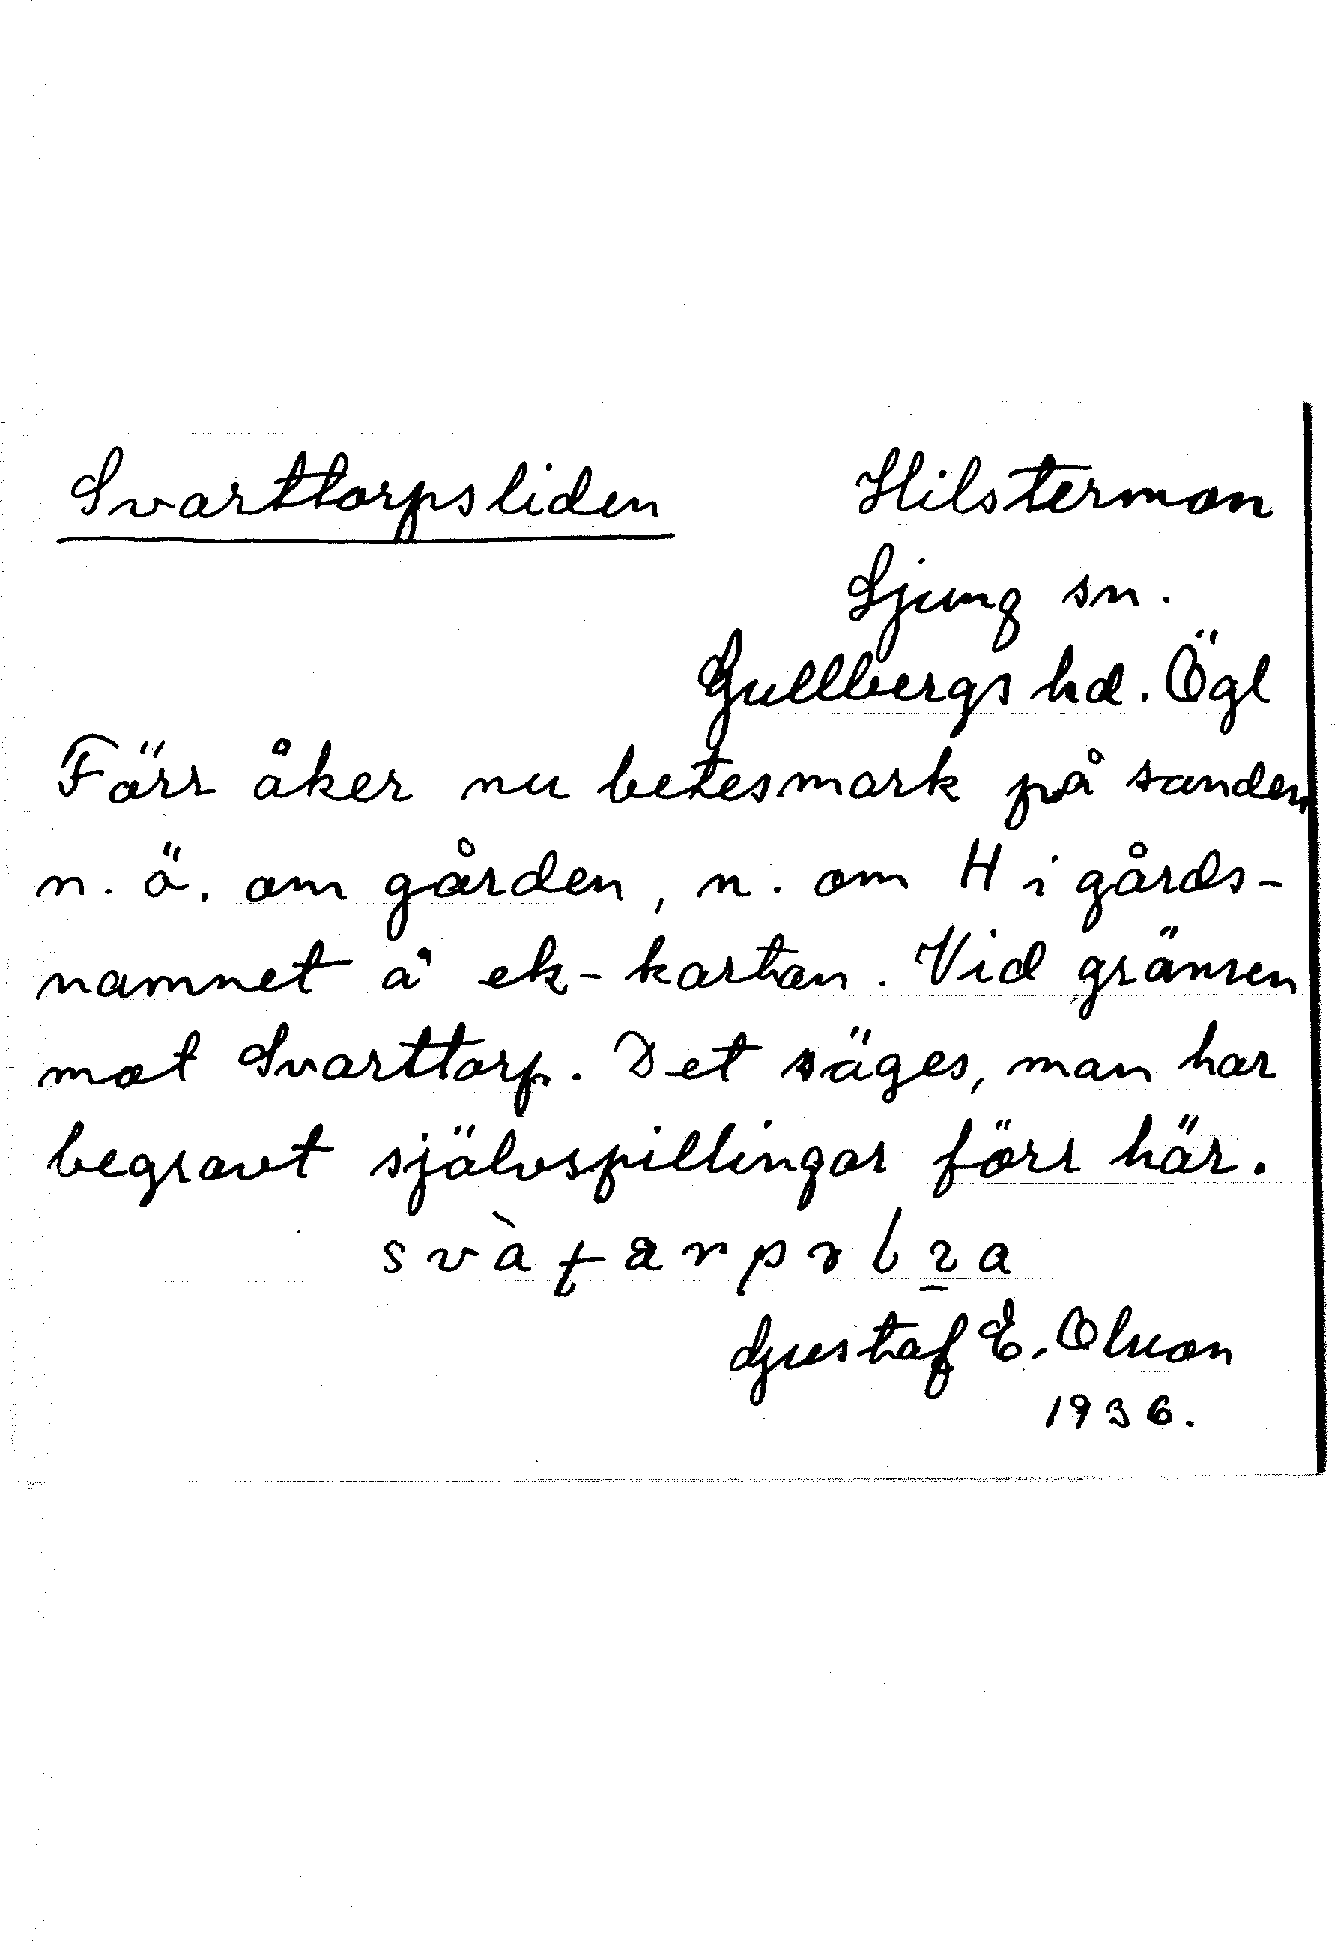 Svarttorpsliden Hilstermon
Ljung sn.
Gullbergs hd. Ögl
Förr åker nu betesmark på sanden
n. ö. om gården, n. om H i gårds-
namnet å ek-kartan. Vid gränsen
mot Svarttorp. Det säges, man har
begravt självspillingar förr här.
Gustaf E. Olson
1936.